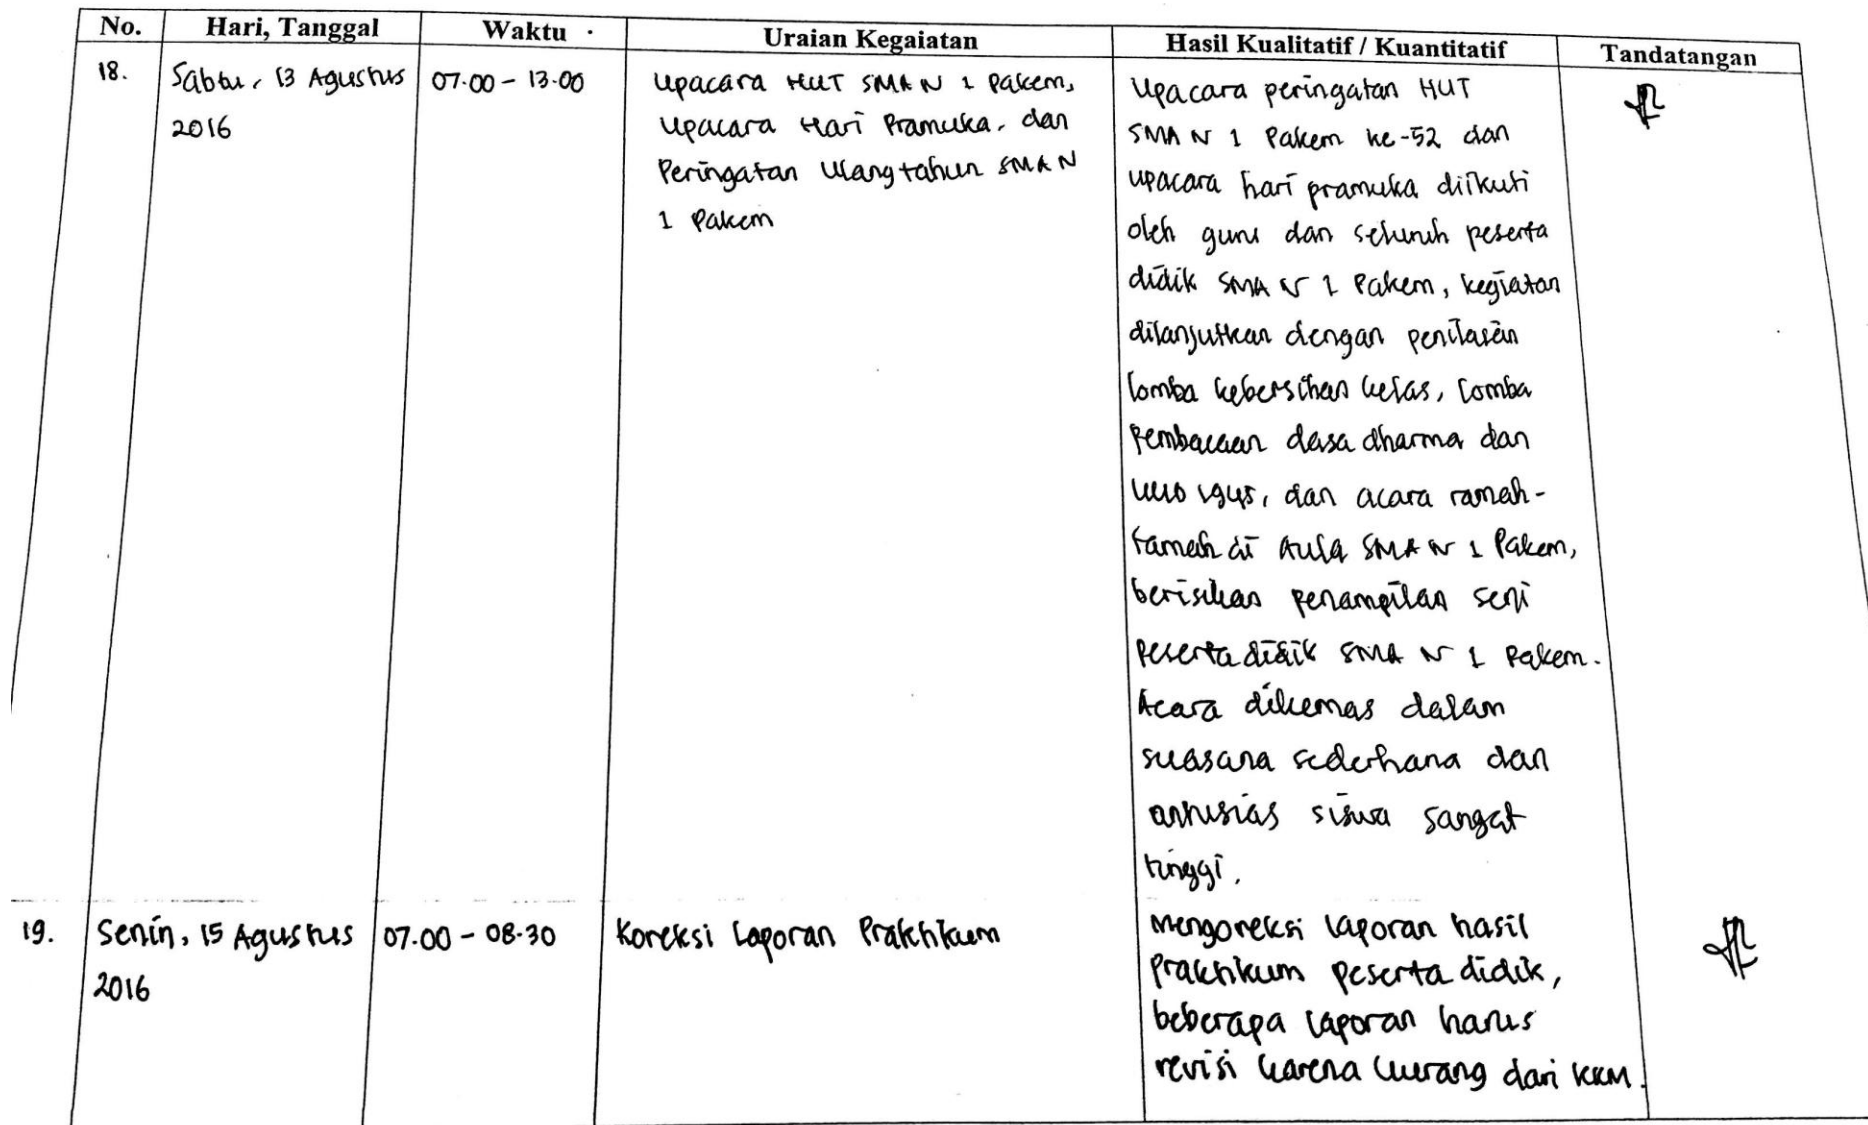 No. Hari, Tanggal Waktu Uraian Kegaiatan Hasil Kualitatif / Kuantitatif Tandatangan
18. Sabtu, 13 Agustus 07.00 - 13.00 Upacara HUT SMA N 1 Pakem, Upacara peringatan HUT
2016 Upacara Hari Pramuka, dan SMA N 1 Pakem ke-52 dan
Peringatan Ulang tahun SMA N upacara hari pramuka diikuti
1 Pakem oleh guru dan seluruh peserta
didik SMA N 1 Pakem, kegiatan
dilanjutkan dengan penilaian
lomba kebersihan kelas, lomba
Pembacaan dasa dharma dan
UUD 1945, dan acara ramah-
tamah di Aula SMA N 1 Pakem,
berisikan penampilan seni
Peserta didik SMA N 1 Pakem.
Acara dikemas dalam
suasana sederhana dan
antusias siswa sangat
tinggi.
19. Senin, 15 Agustus 07.00 - 08.30 Koreksi Laporan Praktikum Mengoreksi laporan hasil
2016 Praktikum peserta didik,
beberapa laporan harus
revisi karena kurang dari KKM.